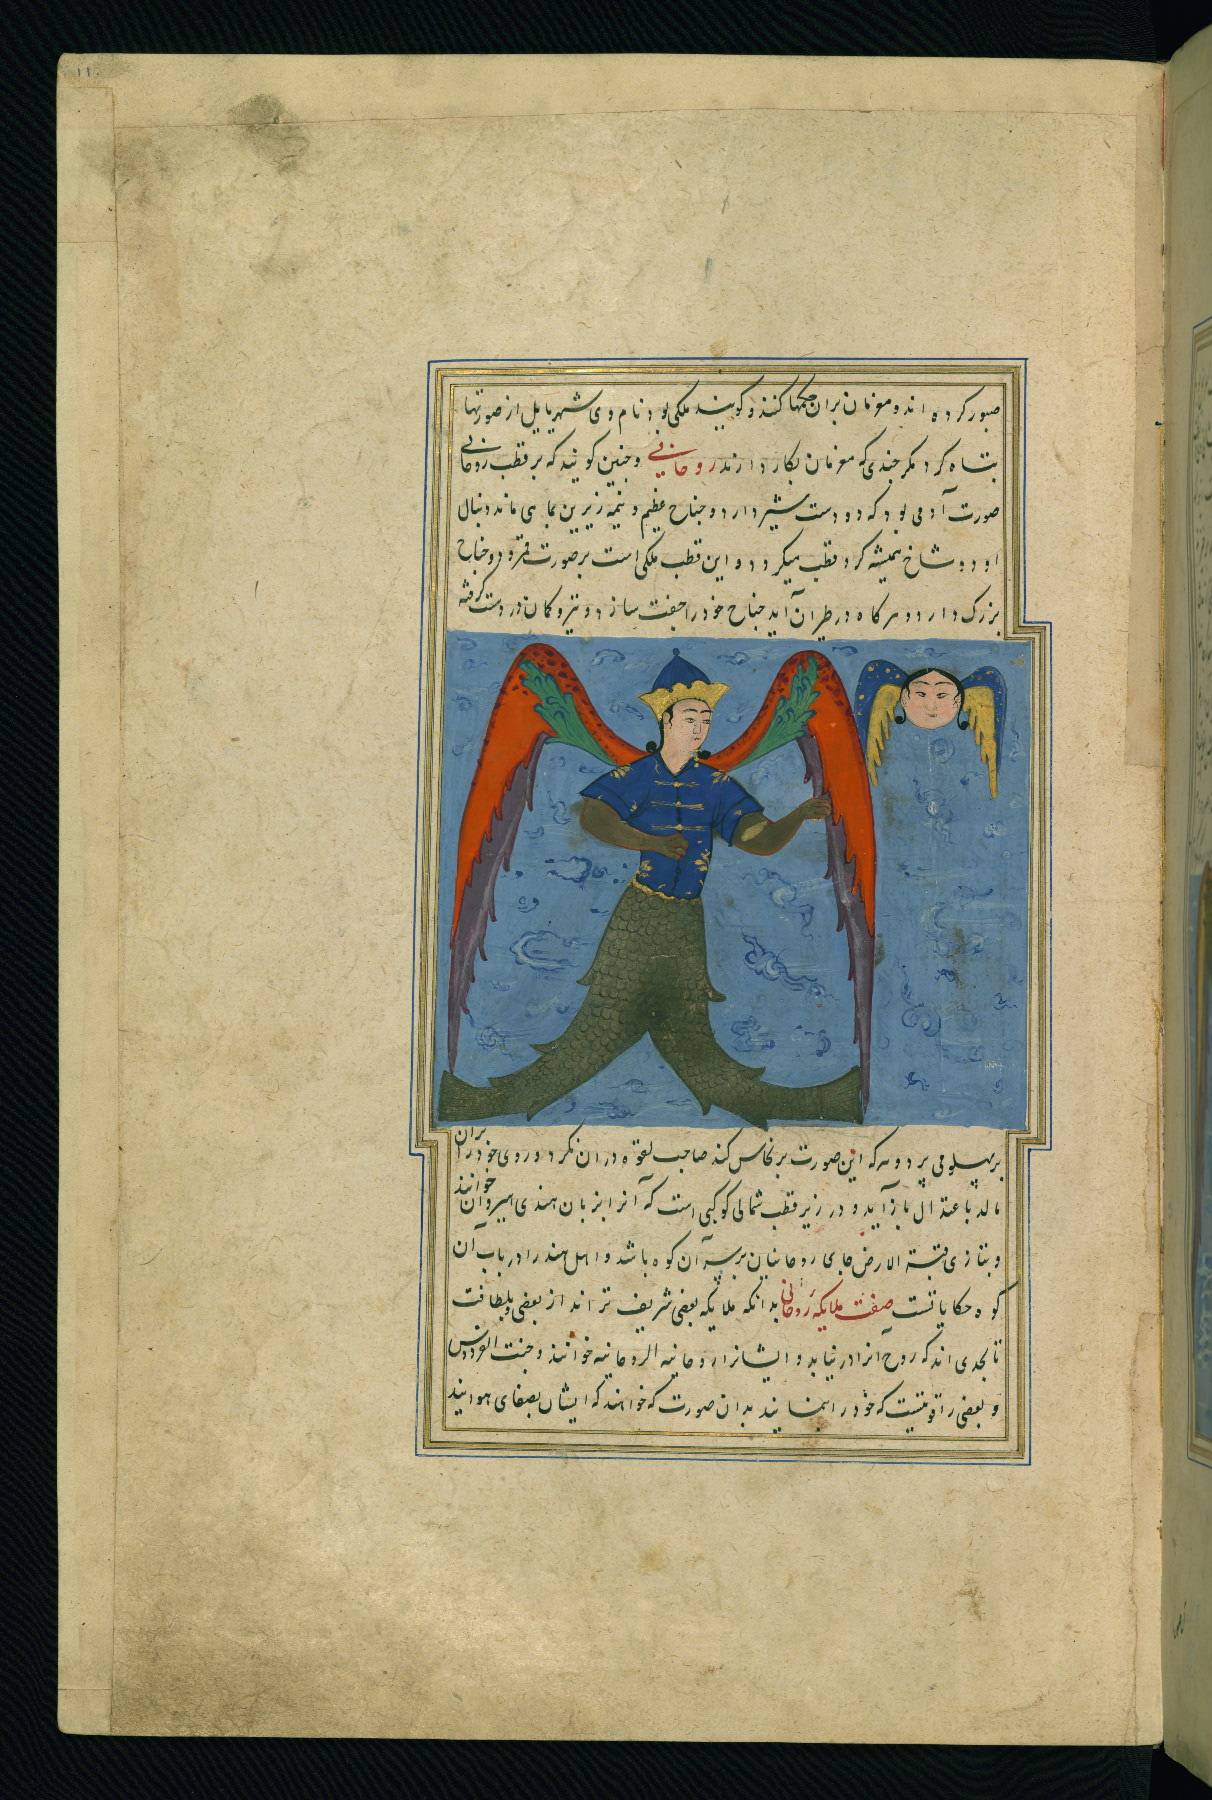 ۱۱۰
صور کرده اند و معزمان بران حکمها کنند و کویند ملکی بود نام وی شهریاییل از صورتها
بتباه کرد مکر چندی که معزمان بکار دارند روحانی و چنین کویند که بر قطب روحانی
صورت آدمی بود که دو دست شیر دارد و جناح عظیم و نیمه زیرین بماهی ماند دنبال
او دو شاخ همیشه کرد قطب میکردد و این قطب ملکی است بر صورت قمر و دو جناح
بزرک دارد و هر کاه در طیران آید جناح خود را جفت سازد و تیر و کمان در دست کرفته
بر پهلو می پرد و هر که این صورت بر نحاس کند صاحب لقوه دران نکرد و روی خود را بران
مالد باعتدال باز آید و در زیر قطب شمالی کوکبی است که آنرا بزبان هندی امیروان خوانند
و بتازی قبة الارض جای روحانیان بر سر آن کوه باشد و اهل هند را در باب آن
کوه حکایاتست صفت ملایکه روحانی بدانکه ملایکه بعضی شریف تر اند از بعضی و بلطافت
تا بحدی اند که روح آنرا در نیابد و ایشانرا روحانیه الروحانیه خوانند و جنت الفردوس
و بعضی را قوتیست که خود را بنمایند بدان صورت که خواهند که ایشان بصفای هوایند